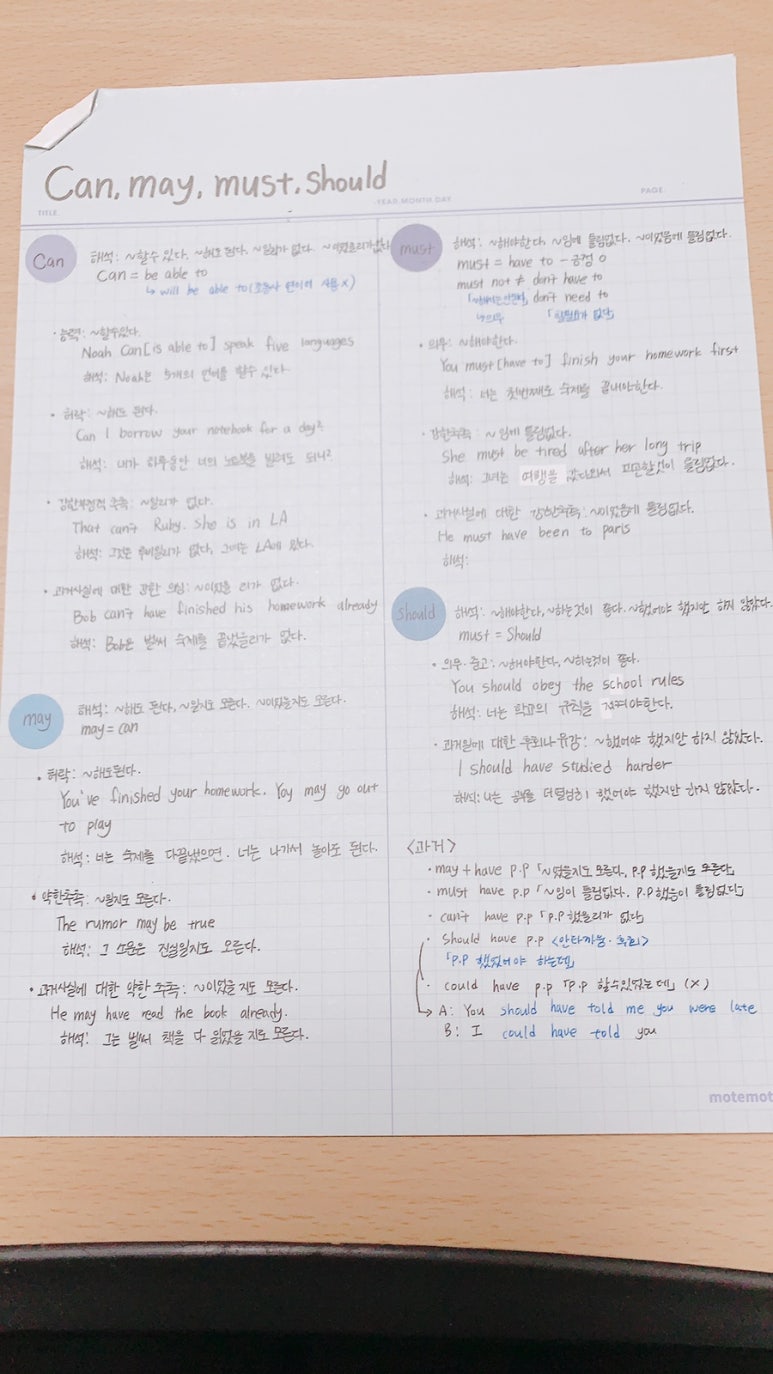 Can, may, must, should
TITLE.
YEAR.MONTH.DAY
PAGE.
Can
해석: ~할수 있다. ~해도 된다. ~일리가 없다. ~이었을리가없다
Can = be able to
↳ will be able to (조동사 연이어 사용 X)
· 능력: ~할수있다.
Noah Can[is able to] speak five languages
해석: Noah은 5개의 언어를 할수 있다.
· 허락: ~해도 된다.
Can I borrow your notebook for a day?
해석: 내가 하루동안 너의 노트북을 빌려도 되니?
· 강한부정적 추측: ~일리가 없다.
That can't Ruby. She is in LA
해석: 그것은 루비일리가 없다, 그녀는 LA에 있다.
· 과거사실에 대한 강한 의심: ~이었을 리가 없다.
Bob can't have finished his homework already
해석: Bob은 벌써 숙제를 끝냈을리가 없다.
may
해석: ~해도 된다, ~일지도 모른다. ~이었을지도 모른다.
may = can
· 허락: ~해도된다.
You've finished your homework. Yoy may go out
to play
해석: 너는 숙제를 다끝냈으면. 너는 나가서 놀아도 된다.
· 약한추측: ~일지도 모른다.
The rumor may be true
해석: 그 소문은 진실일지도 모른다.
· 과거사실에 대한 약한 추측: ~이었을 지도 모른다.
He may have read the book already.
해석: 그는 벌써 책을 다 읽었을 지도 모른다.
must
해석: ~해야한다, ~임에 틀림없다. ~이었음에 틀림없다.
must = have to - 긍정 O
must not ≠ don't have to
「~해서는안된다」 don't need to
↳의무 「할필요가 없다」
· 의무: ~해야한다.
You must[have to] finish your homework first
해석: 너는 첫번째로 숙제를 끝내야한다.
· 강한추측: ~임에 틀림없다.
She must be tired after her long trip
해석: 그녀는 여행을 갔다와서 피곤할것이 틀림없다.
· 과거사실에 대한 강한추측: ~이었음에 틀림없다.
He must have been to paris
해석:
Should
해석: ~해야한다, ~하는것이 좋다. ~했어야 했지만 하지 않았다.
must = Should
· 의무·충고: ~해야한다, ~하는것이 좋다.
You should obey the school rules
해석: 너는 학교의 규칙을 지켜야한다.
· 과거일에 대한 후회나 유감: ~했어야 했지만 하지 않았다.
I should have studied harder
해석: 나는 공부를 더열심히 했어야 했지만 하지 않았다.
<과거>
· may + have p.p 「~였을지도 모른다, P.P 했을지도 모른다」
· must have p.p 「~임이 틀림없다. P.P했음이 틀림없다」
· can't have p.p 「P.P 했을리가 없다」
· Should have p.p <안타까움·후회>
「P.P 했었어야 하는데」
· could have p.p 「P.P 할수있었는데」 (X)
→ A: You should have told me you were late
B: I could have told you
motemot